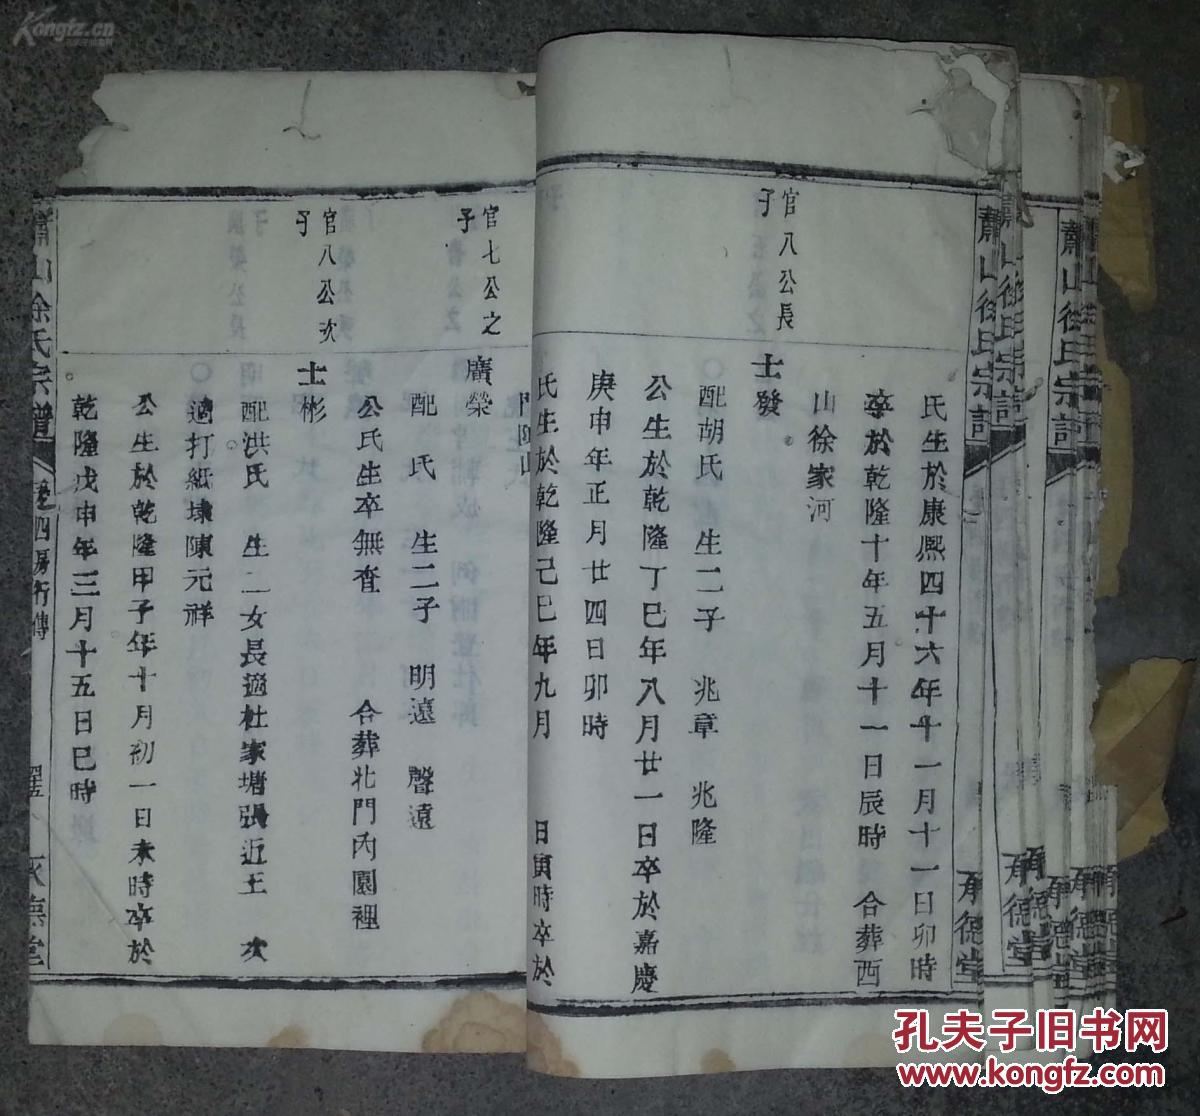 蕭山徐氏宗譜
承德堂
氏生於康熙四十六年十一月十一日卯時
卒於乾隆十年五月十一日辰時 合葬西
山徐家河
官八公長
子
士發
配胡氏 生二子 兆章 兆隆
公生於乾隆丁巳年八月廿一日卒於嘉慶
庚申年正月廿四日卯時
氏生於乾隆己巳年九月 日寅時卒於
官七公之
子
廣榮
配 氏 生二子 明遠 聲遠
公氏生卒無查 合葬北門內園裡
官八公次
子
士彬
配洪氏 生二女長適杜家塘張近王 次
適打紙埭陳元祥
公生於乾隆甲子年十月初一日未時卒於
乾隆戊申年三月十五日巳時
蕭山徐氏宗譜 四房行傳 承德堂
Kongfz.cn
孔夫子旧书网
www.kongfz.com